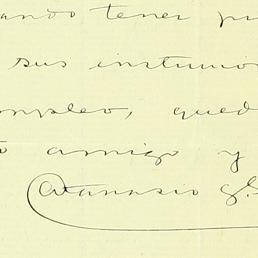 ando tener pu
sus instrucio
mpleo, qued
o amigo y
Atanasio G.